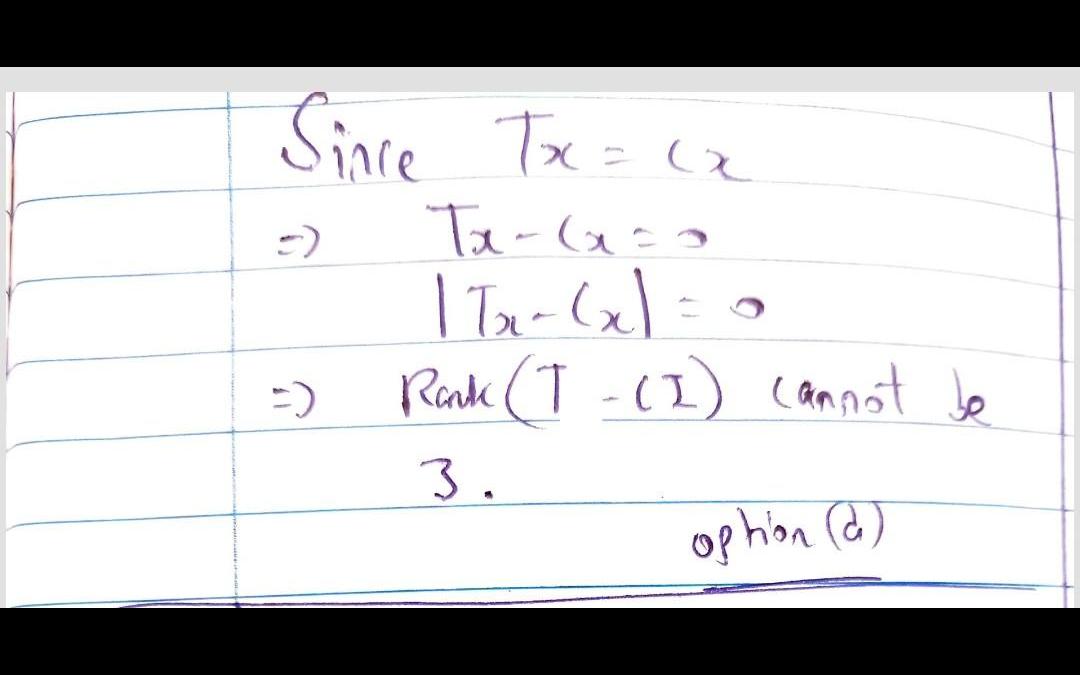 Since Tx = Cx
=> Tx - Cx = 0
|Tx - Cx| = 0
=> Rank (T - CI) cannot be
3.
option (d)